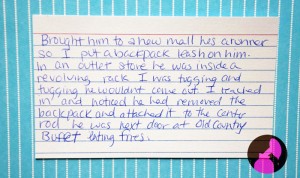 Brought him to a new mall hes a runner
so I put a backpack leash on him.
In an outlet store he was inside a
revolving rack I was tugging and
tugging he wouldnt come out I reached
in and noticed he had removed the
backpack and attached it to the center
rod he was next door at Old Country
Buffet eating fries.